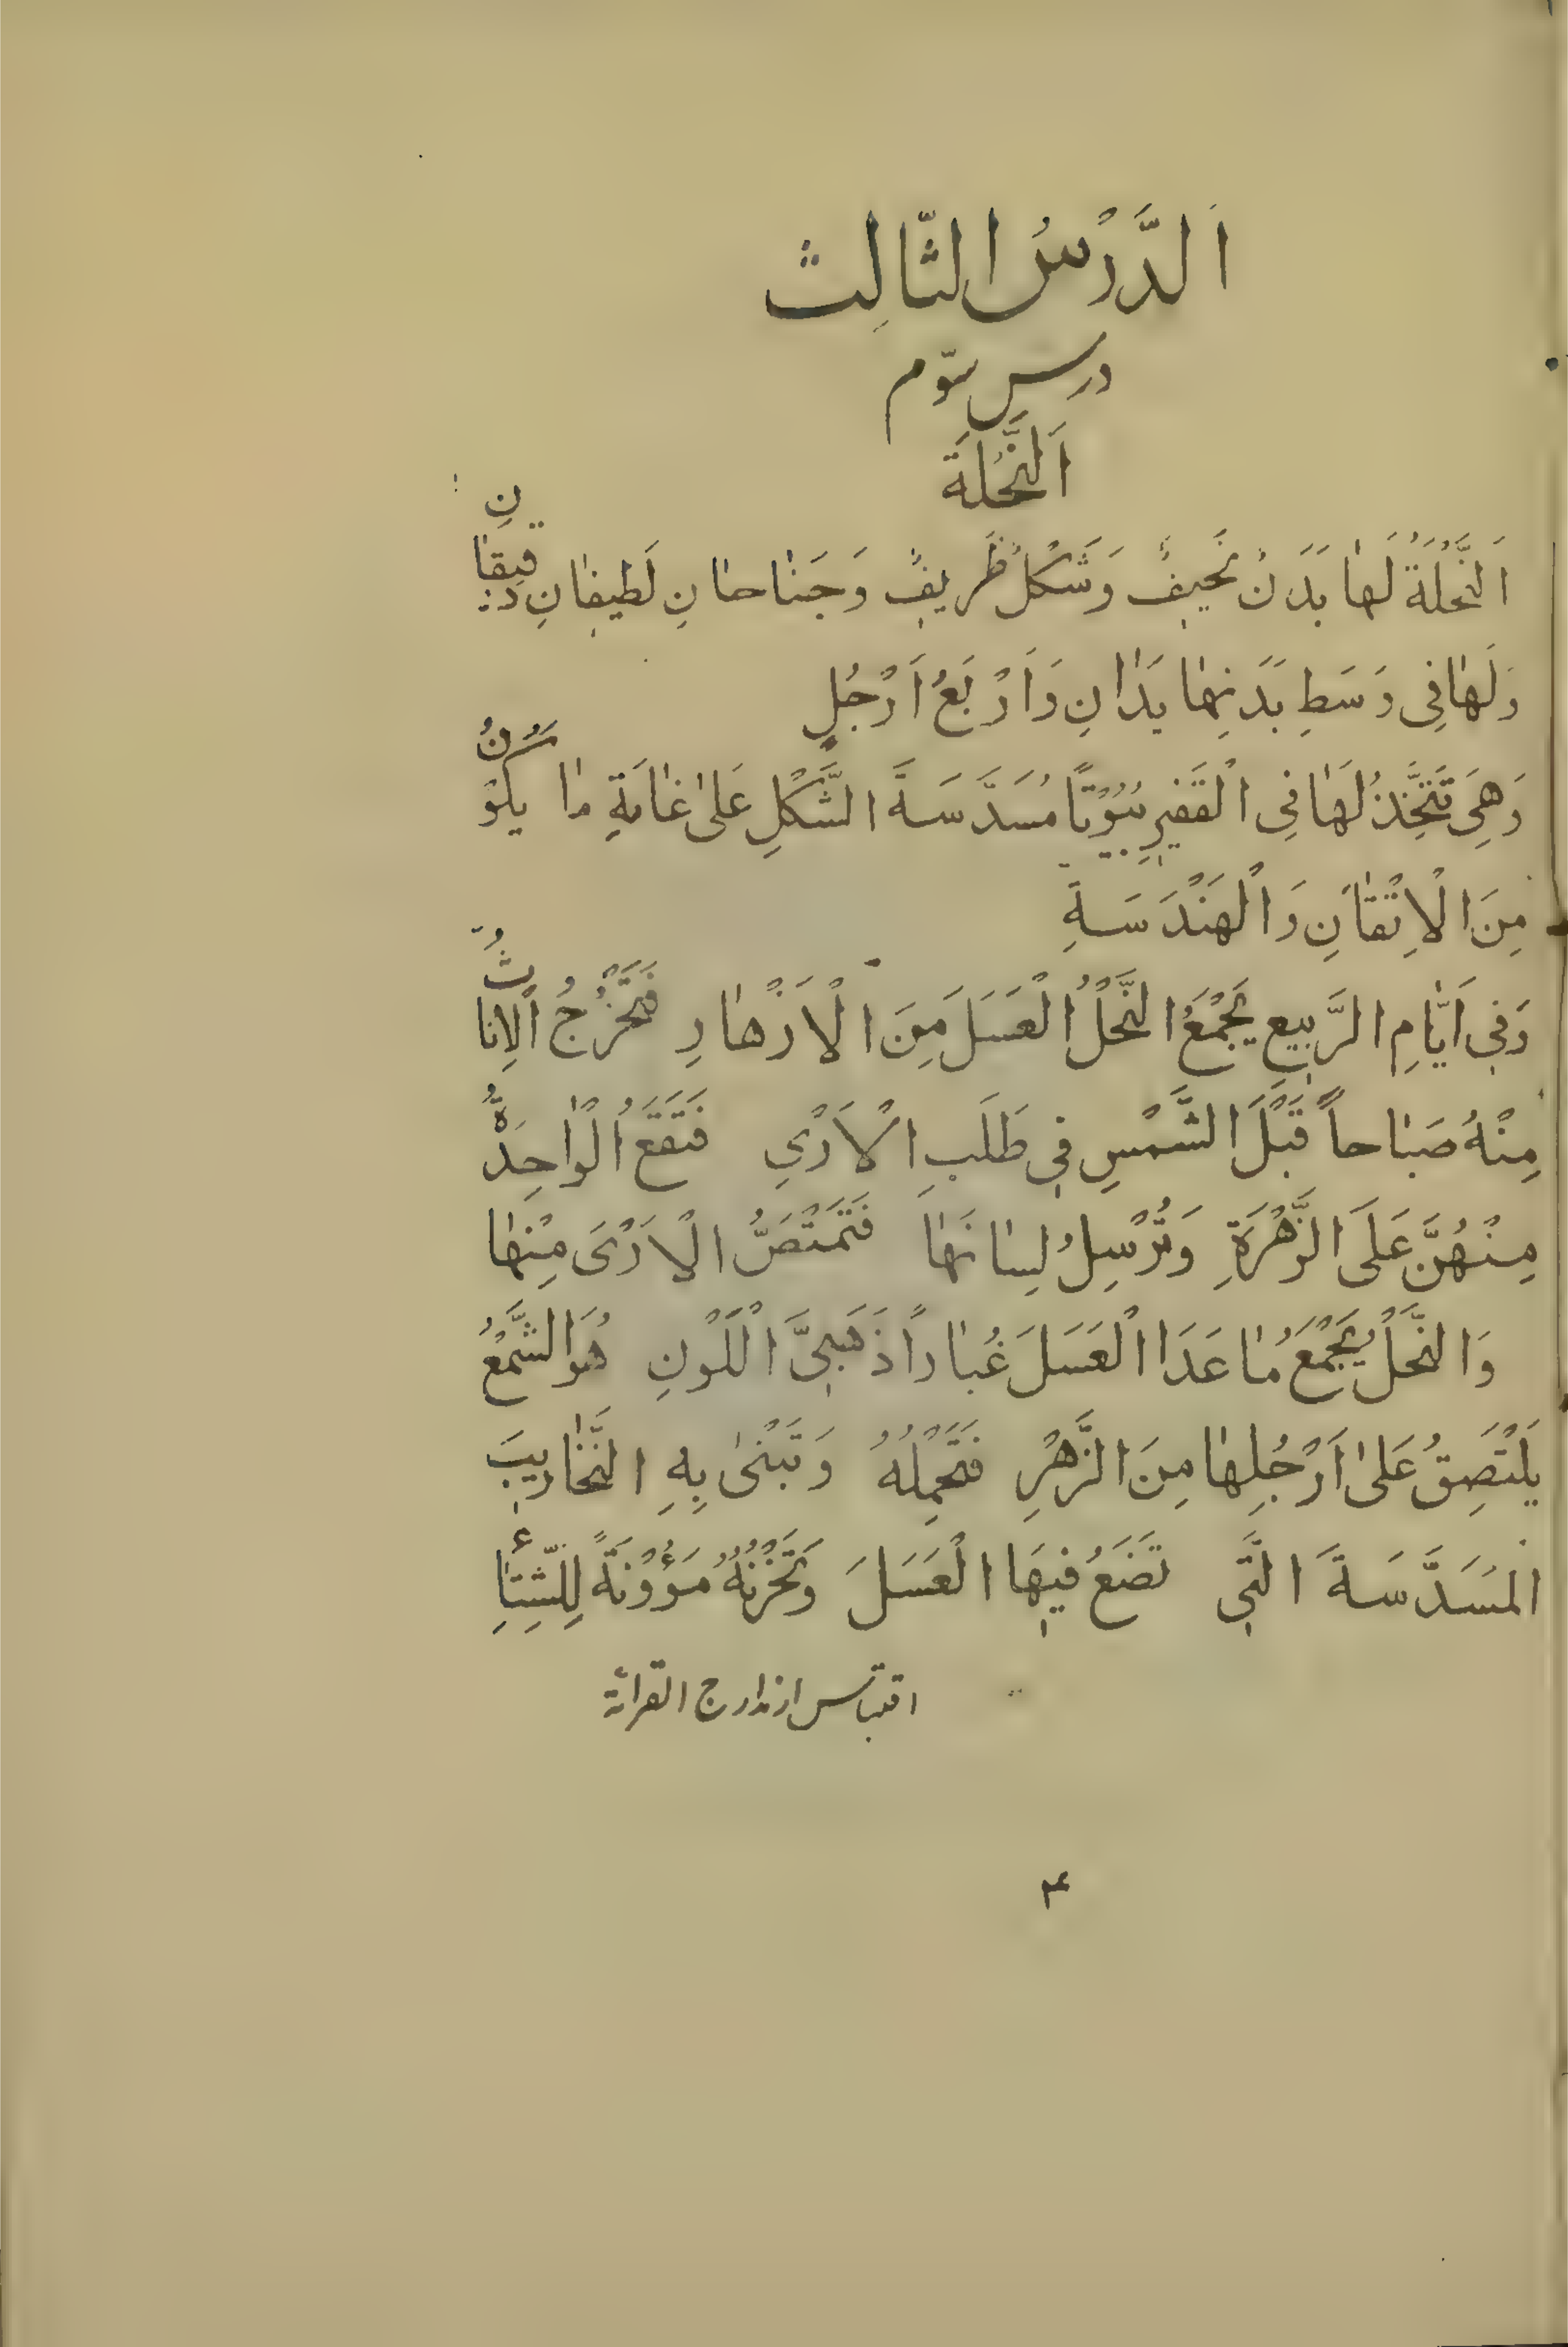 اَلدَّرْسُ الثّالِث
درس سوّم
اَلنَّحْلَةَ
اَلنَّحْلَةُ لَهٰا بَدَنٌ نَحيفٌ وَشَكْلٌ ظَريفٌ وَجَنٰاحٰانِ لَطيفٰانِ دَقيقٰانِ
وَلَهٰا فِى وَسَطِ بَدَنِهٰا يَدٰانِ وَاَرْبَعُ اَرْجُلٍ
وَهِىَ تَتَّخِذُ لَهٰا فِى الْقَفيرِ بُيُوْتًا مُسَدَّسَةَ الشَّكْلِ عَلىٰ غٰايَةِ مٰا يَكُوْنُ
مِنَ الْاِتْقٰانِ وَالْهَنْدَسَةِ
وَفِى اَيّٰامِ الرَّبيعِ يَجْمَعُ النَّحْلُ الْعَسَلَ مِنَ الْاَزْهٰارِ فَتَخْرُجُ الْاِنٰاثُ
مِنْهُ صَبٰاحاً قَبْلَ الشَّمْسِ فِى طَلَبِ الْاَرْىِ فَتَقَعُ الْوٰاحِدَةُ
مِنْهُنَّ عَلَى الزَّهْرَةِ وَتُرْسِلُ لِسٰانَهٰا فَتَمْتَصُّ الْاَرْىَ مِنْهٰا
وَالنَّحْلُ يَجْمَعُ مٰا عَدَا الْعَسَلَ غُبٰاراً ذَهَبِىَّ اللَّوْنِ هُوَ الشَّمْعُ
يَلْتَصِقُ عَلىٰ اَرْجُلِهٰا مِنَ الزَّهْرِ فَتَحْمِلُهُ وَتَبْنىٰ بِهِ النَّخٰاريبَ
المُسَدَّسَةَ الَّتى تَضَعُ فيهَا الْعَسَلَ وَتَخْزُنُهُ مَؤُوْنَةً لِلشِّتٰاءِ
اقتباس از مدارج القرائة
۴